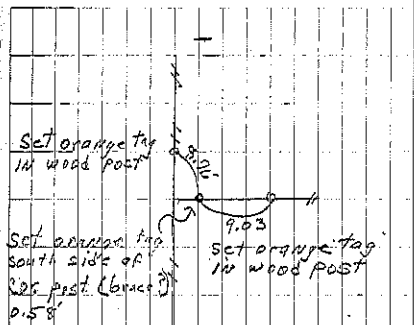 Set orange tag
in wood post
8.76'
9.03
Set orange tag
South side of
Cor post (brace?)
0.58'
Set orange tag
in wood post